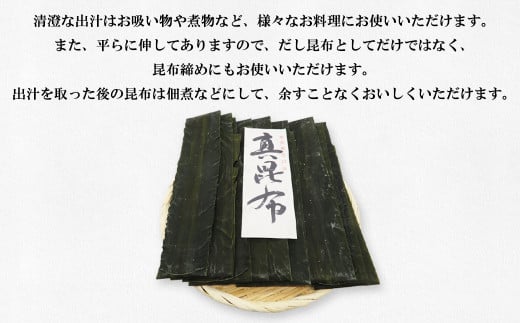 清澄な出汁はお吸い物や煮物など、様々なお料理にお使いいただけます。
また、平らに伸してありますので、だし昆布としてだけではなく、
昆布締めにもお使いいただけます。
出汁を取った後の昆布は佃煮などにして、余すことなくおいしくいただけます。
真昆布